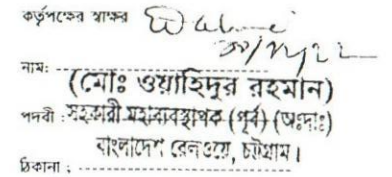 কর্তৃপক্ষের স্বাক্ষর
নাম:
(মোঃ ওয়াহিদুর রহমান)
পদবী : সহকারী মহাব্যবস্থাপক (পূর্ব) (অঃদাঃ)
বাংলাদেশ রেলওয়ে, চট্টগ্রাম।
ঠিকানা ;